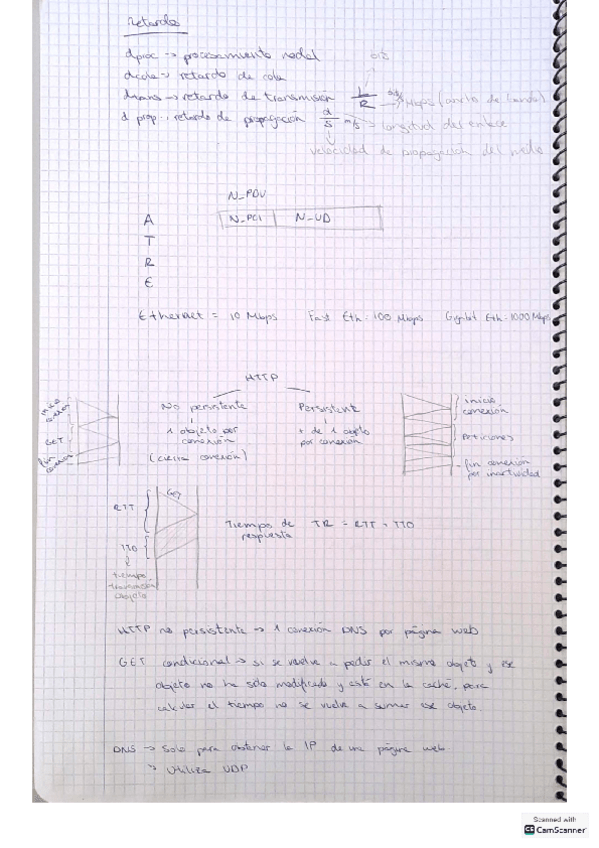 Retardo
dproc → procesamiento nodal
dcola → retardo de cola
dtrans → retardo de transmisión L/R Mbps (ancho de banda)
d prop : retardo de propagación d/s m/s → longitud del enlace
velocidad de propagación del medio
N_PDU
A N_PCI N_UD
T
R
E
Ethernet = 10 Mbps Fast Eth : 100 Mbps Gigabit Eth : 1000 Mbps
HTTP
No persistente Persistente
1 objeto por conexión + de 1 objeto por conexión
(cierra conexión)
inicio conexión
GET
fin conexión
inicio conexión
Peticiones
fin conexión por inactividad
RTT
TTO
tiempo transmisión objeto
Tiempo de respuesta TR = RTT + TTO
HTTP no persistente → 1 conexión DNS por página web
GET condicional → si se vuelve a pedir el mismo objeto y ese
objeto no ha sido modificado y está en la caché, para
calcular el tiempo no se vuelve a sumar ese objeto.
DNS → Solo para obtener la IP de una página web
↳ Utiliza UDP
Scanned with
CS CamScanner